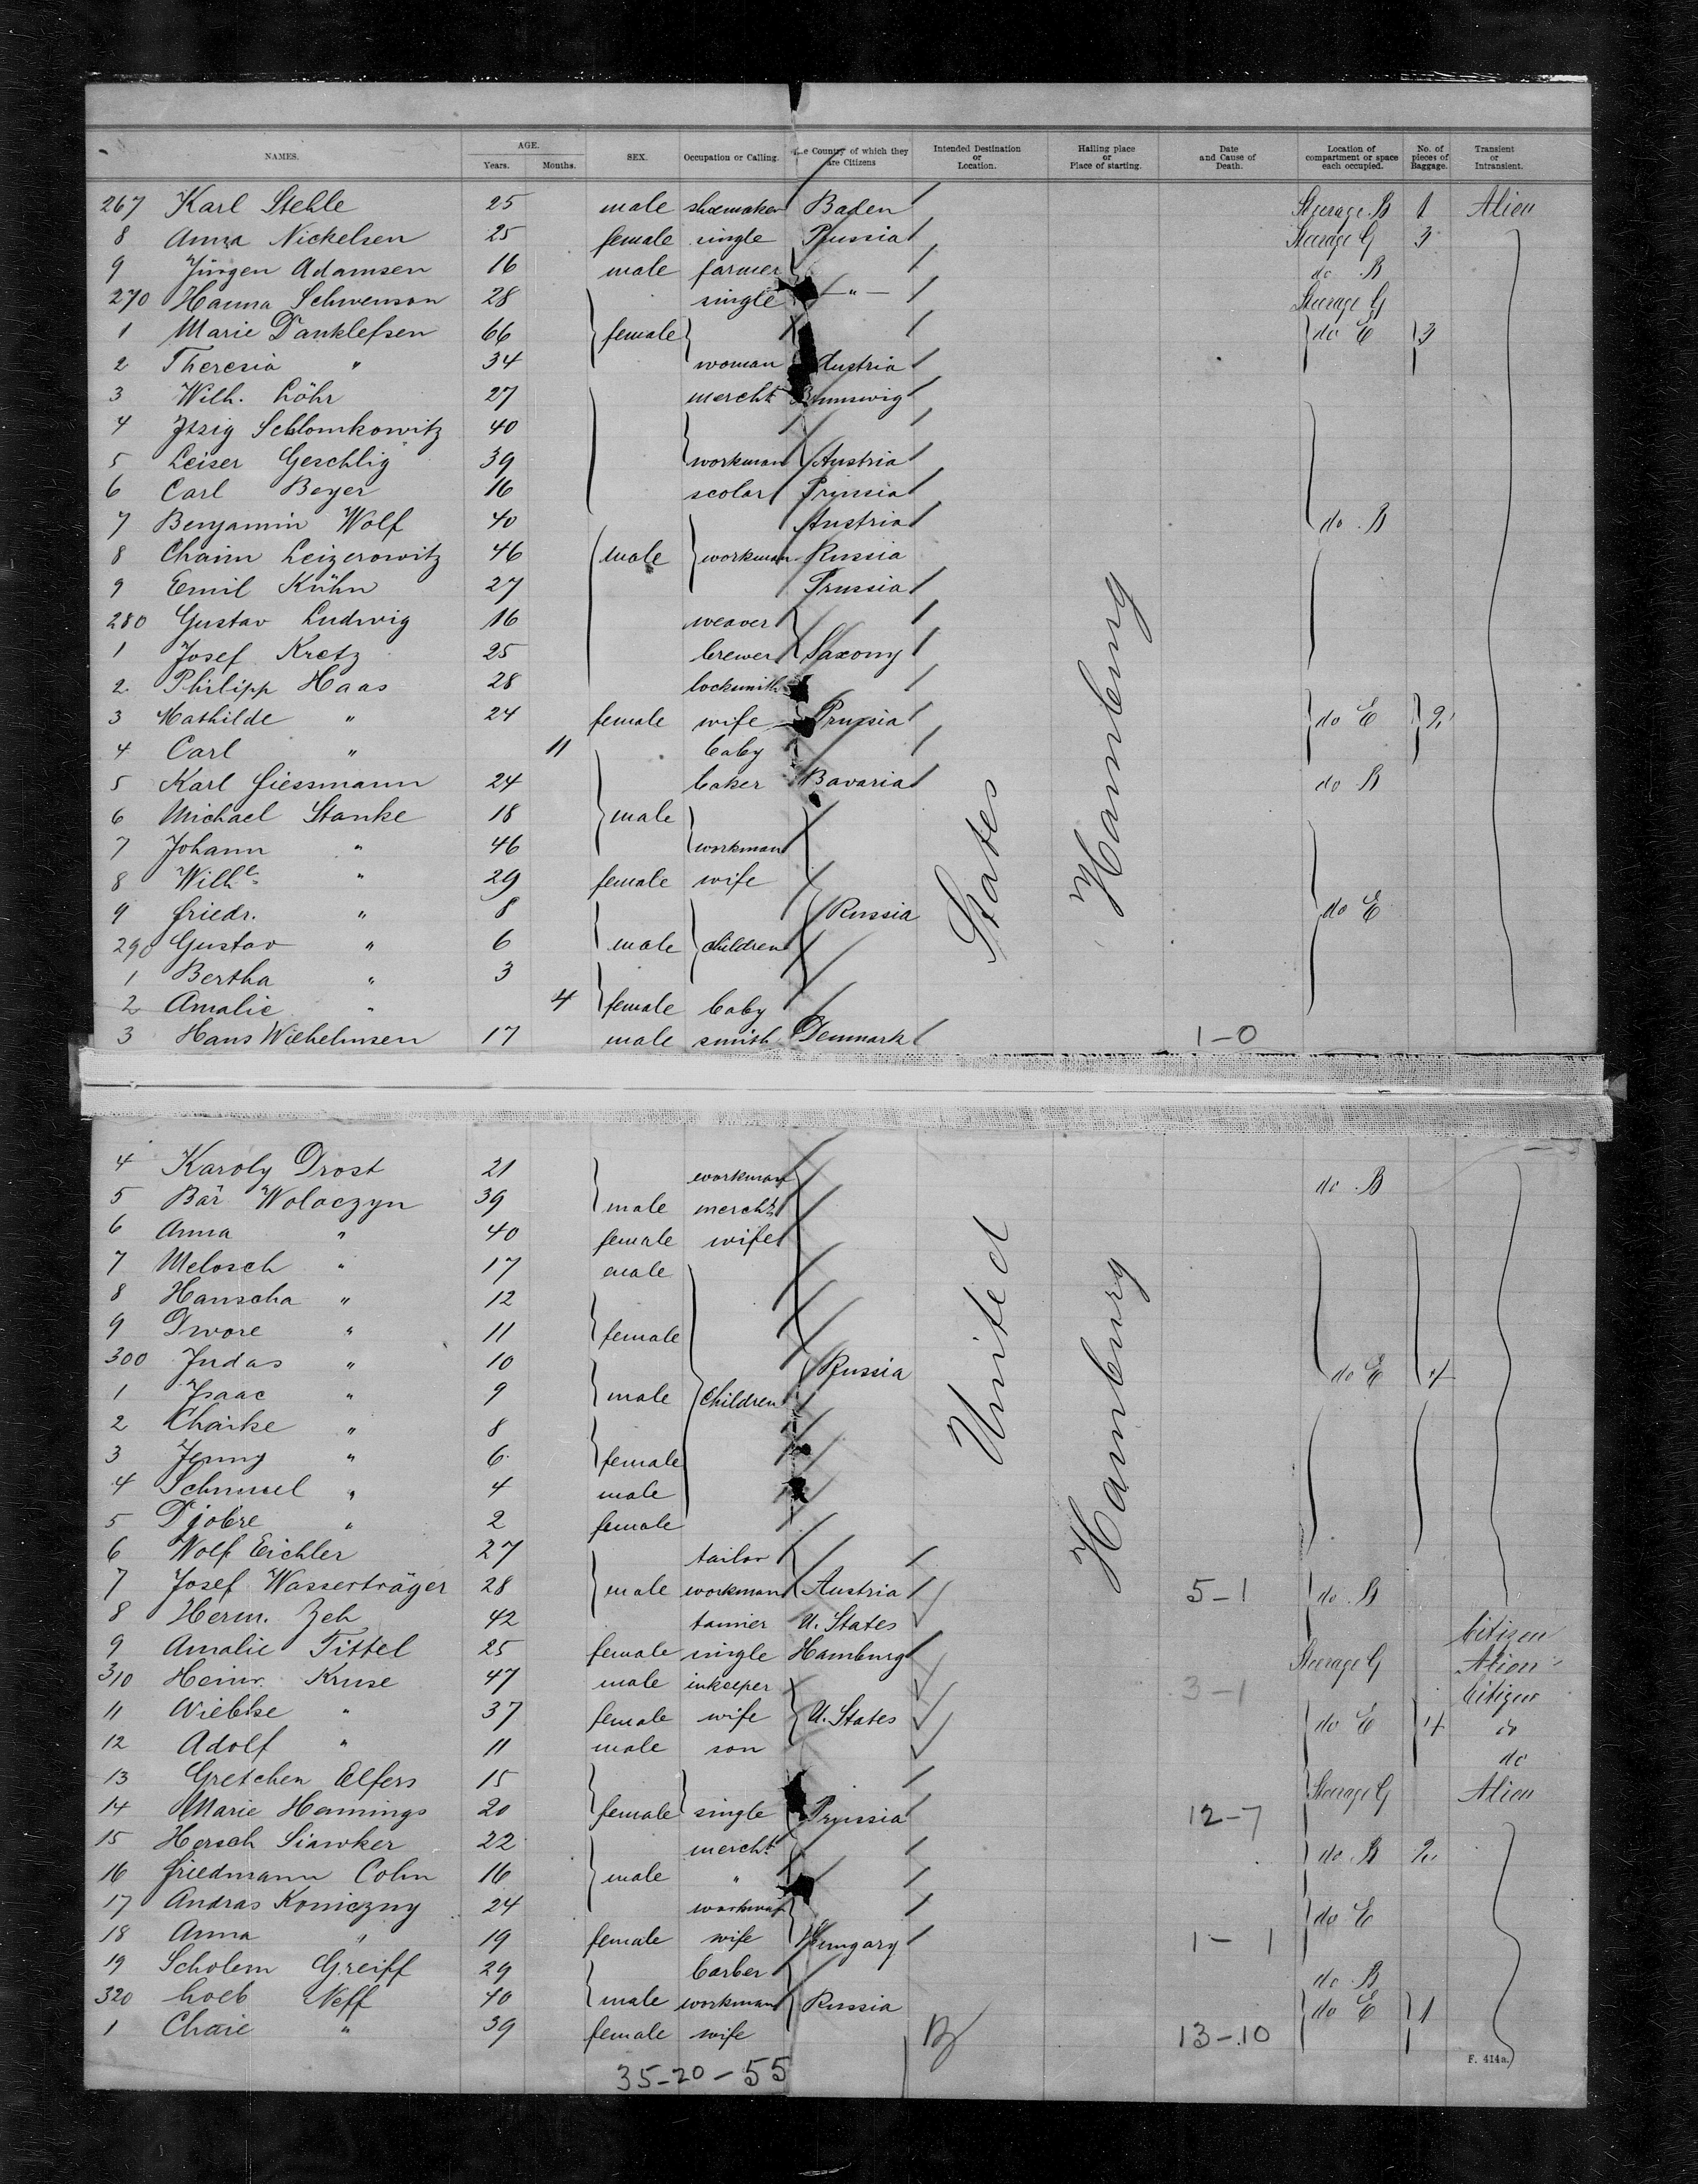 NAMES. AGE. Years. Months. SEX. Occupation or Calling. The Country of which they are Citizens Intended Destination or Location. Hailing place or Place of starting. Date and Cause of Death. Location of compartment or space each occupied. No. of pieces of Baggage. Transient or Intransient.
267 Karl Stehle 25 male shoemaker Baden Steerage B 1 Alien
8 Anna Nickelsen 25 female single Prussia Steerage G 3
9 Jürgen Adamsen 16 male farmer do B
270 Hanna Schwenson 28 single " Steerage G
1 Marie Danklefsen 66 female do E 3
2 Theresia " 34 woman Austria
3 Wilh. Löhr 27 mercht Brunswig
4 Itzig Schlomkowitz 40
5 Leiser Geschlig 39 workman Austria
6 Carl Beyer 16 scolar Prussia
7 Benjamin Wolf 40 Austria do B
8 Chaim Leizerowitz 46 male workman Russia
9 Emil Kühn 27 Prussia
280 Gustav Ludwig 16 weaver
1 Josef Kretz 25 brewer Saxony
2 Philipp Haas 28 locksmith
3 Mathilde " 24 female wife Prussia do E 2
4 Carl " 11 baby
5 Karl Giessmann 24 baker Bavaria do B
6 Michael Stanke 18 male
7 Johann " 46 workman
8 Wilhe " 29 female wife
9 Friedr. " 8 Russia do E
290 Gustav " 6 male children
1 Bertha " 3
2 Amalie " 4 female baby
3 Hans Wilhelmsen 17 male smith Denmark 1-0
States
Hamburg
4 Karoly Drost 21 workman do B
5 Bär Woloczyn 39 male mercht
6 Anna " 40 female wife
7 Melosch " 17 male
8 Hanscha " 12
9 Dwore " 11 female
300 Judas " 10 Russia do E 4
1 Isaac " 9 male children
2 Chaike " 8
3 Jenny " 6 female
4 Schmuel " 4 male
5 Djobre " 2 female
6 Wolf Eichler 27 tailor
7 Josef Wasserträger 28 male workman Austria 5-1 do B
8 Herm. Zeh 42 tanner U. States Citizen
9 Amalie Tittel 25 female single Hamburg Steerage G Alien
310 Heinr. Kruse 47 male inkeeper 3-1 Citizen
11 Wiebke " 37 female wife U. States do E 4 do
12 Adolf " 11 male son do
13 Gretchen Elfers 15 Steerage G Alien
14 Marie Hennings 20 female single Prussia 12-7
15 Hersch Siawker 22 mercht do B 2
16 Friedmann Cohn 16 male "
17 Andras Koniczny 24 workman do E
18 Anna " 19 female wife Hungary 1-1
19 Scholem Greiff 29 barber do B
320 Loeb Neff 40 male workman Russia do E 1
1 Chaie " 39 female wife 13-10
United
Hamburg
35-20-55
F. 414a.